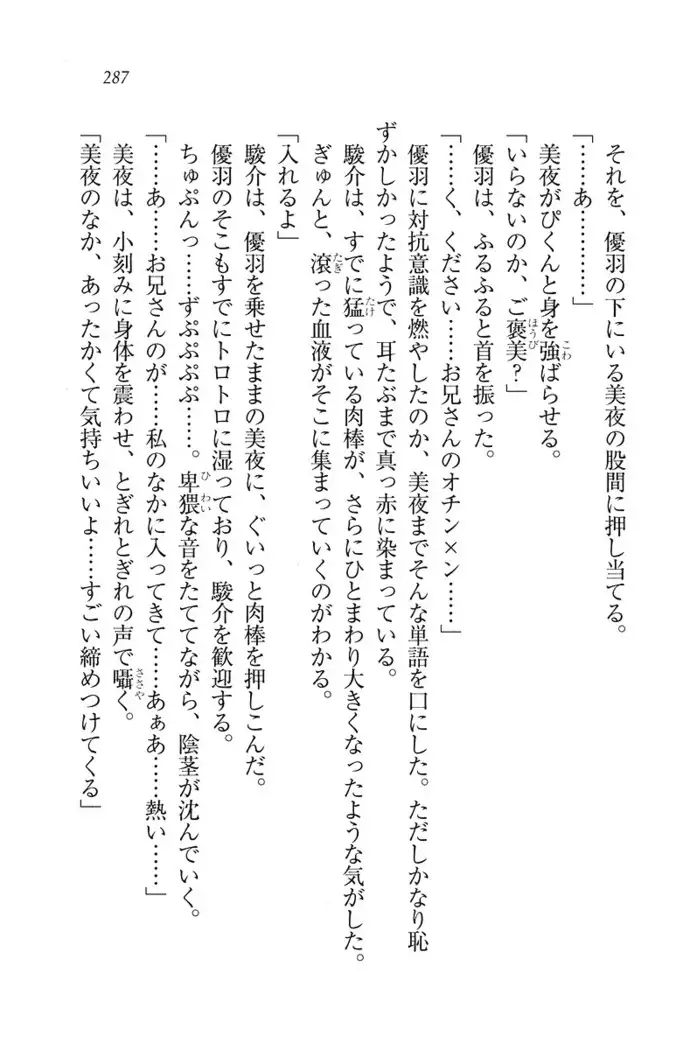 287
それを、優羽の下にいる美夜の股間に押し当てる。
「……あ…………」
美夜がぴくんと身を強ばらせる。
「いらないのか、ご褒美？」
優羽は、ふるふると首を振った。
「……く、ください……お兄さんのオチン×ン……」
優羽に対抗意識を燃やしたのか、美夜までそんな単語を口にした。ただしかなり恥
ずかしかったようで、耳たぶまで真っ赤に染まっている。
駿介は、すでに猛っている肉棒が、さらにひとまわり大きくなったような気がした。
ぎゅんと、滾った血液がそこに集まっていくのがわかる。
「入れるよ」
駿介は、優羽を乗せたままの美夜に、ぐいっと肉棒を押しこんだ。
優羽のそこもすでにトロトロに湿っており、駿介を歓迎する。
ちゅぷんっ……ずぷぷぷぷ……。卑猥な音をたててながら、陰茎が沈んでいく。
「……あ……お兄さんのが……私のなかに入ってきて……あぁあ……熱い……」
美夜は、小刻みに身体を震わせ、とぎれとぎれの声で囁く。
「美夜のなか、あったかくて気持ちいいよ……すごい締めつけてくる」